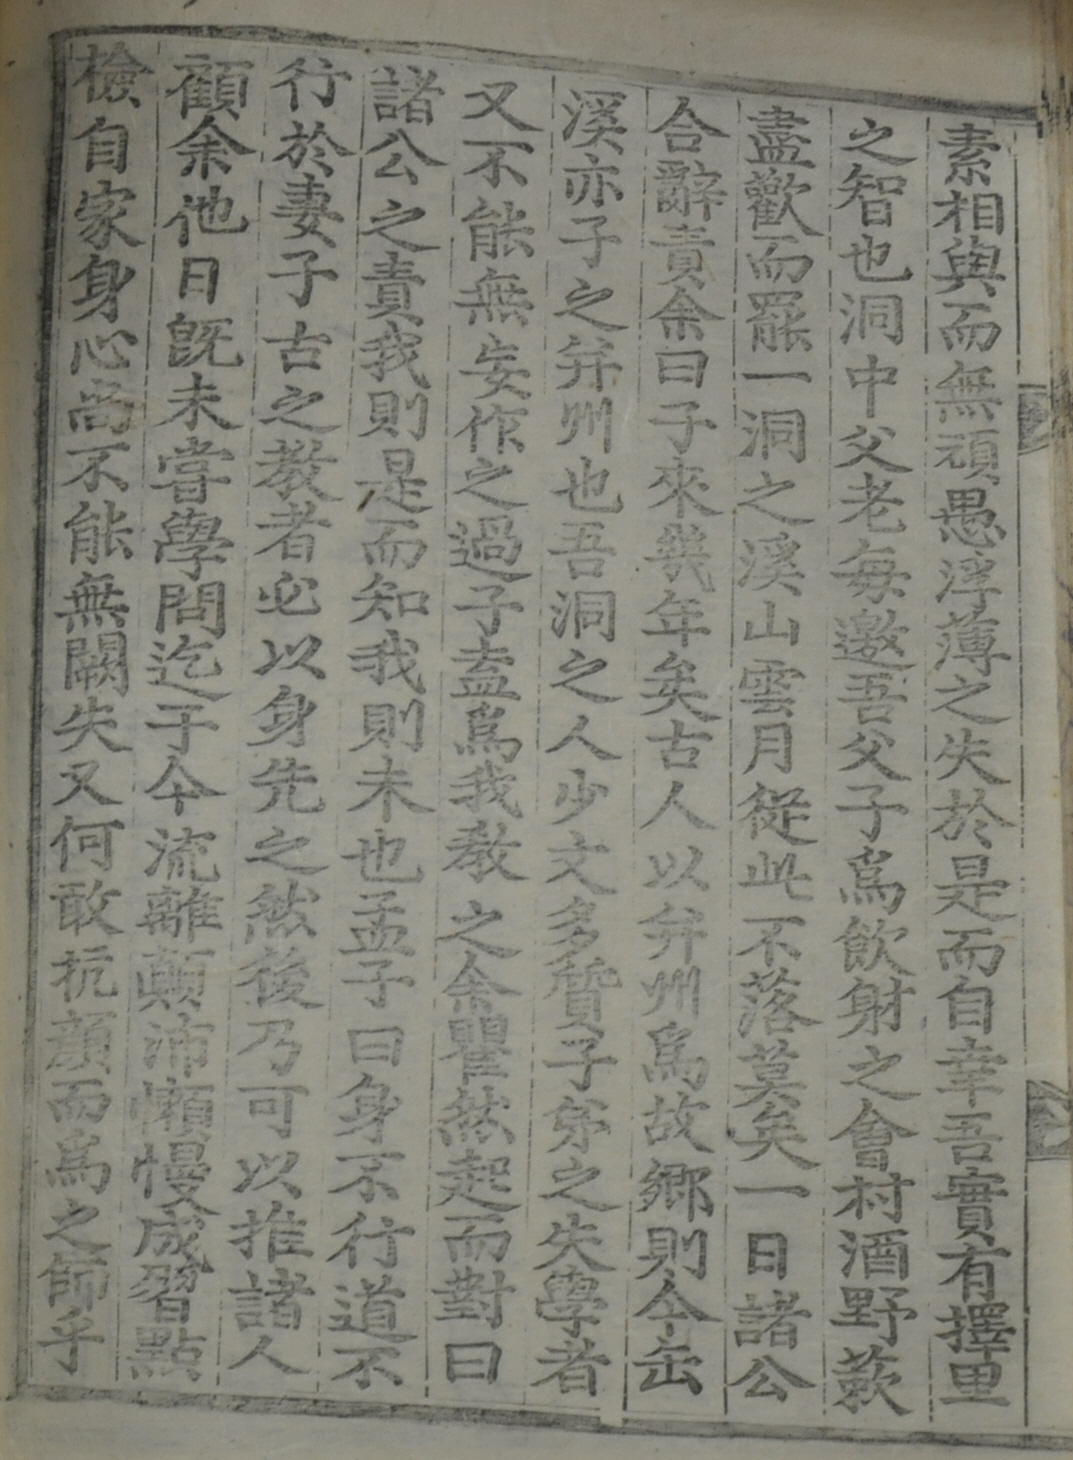 素相與而無頑愚浮薄之失於是而自幸吾實有擇里
之智也洞中父老每邀吾父子爲飮射之會村酒野蔌
盡歡而罷一洞之溪山雲月從此不落莫矣一日諸公
合辭責余曰子來幾年矣古人以并州爲故鄕則今缶
溪亦子之并州也吾洞之人少文多質子弟之失學者
又不能無妄作之過子盍爲我敎之余瞿然起而對曰
諸公之責我則是而知我則未也孟子曰身不行道不
行於妻子古之敎者必以身先之然後乃可以推諸人
顧余他日旣未嘗學問迄于今流離顚沛懶慢成習點
檢自家身心尙不能無闕失又何敢抗顔而爲之師乎